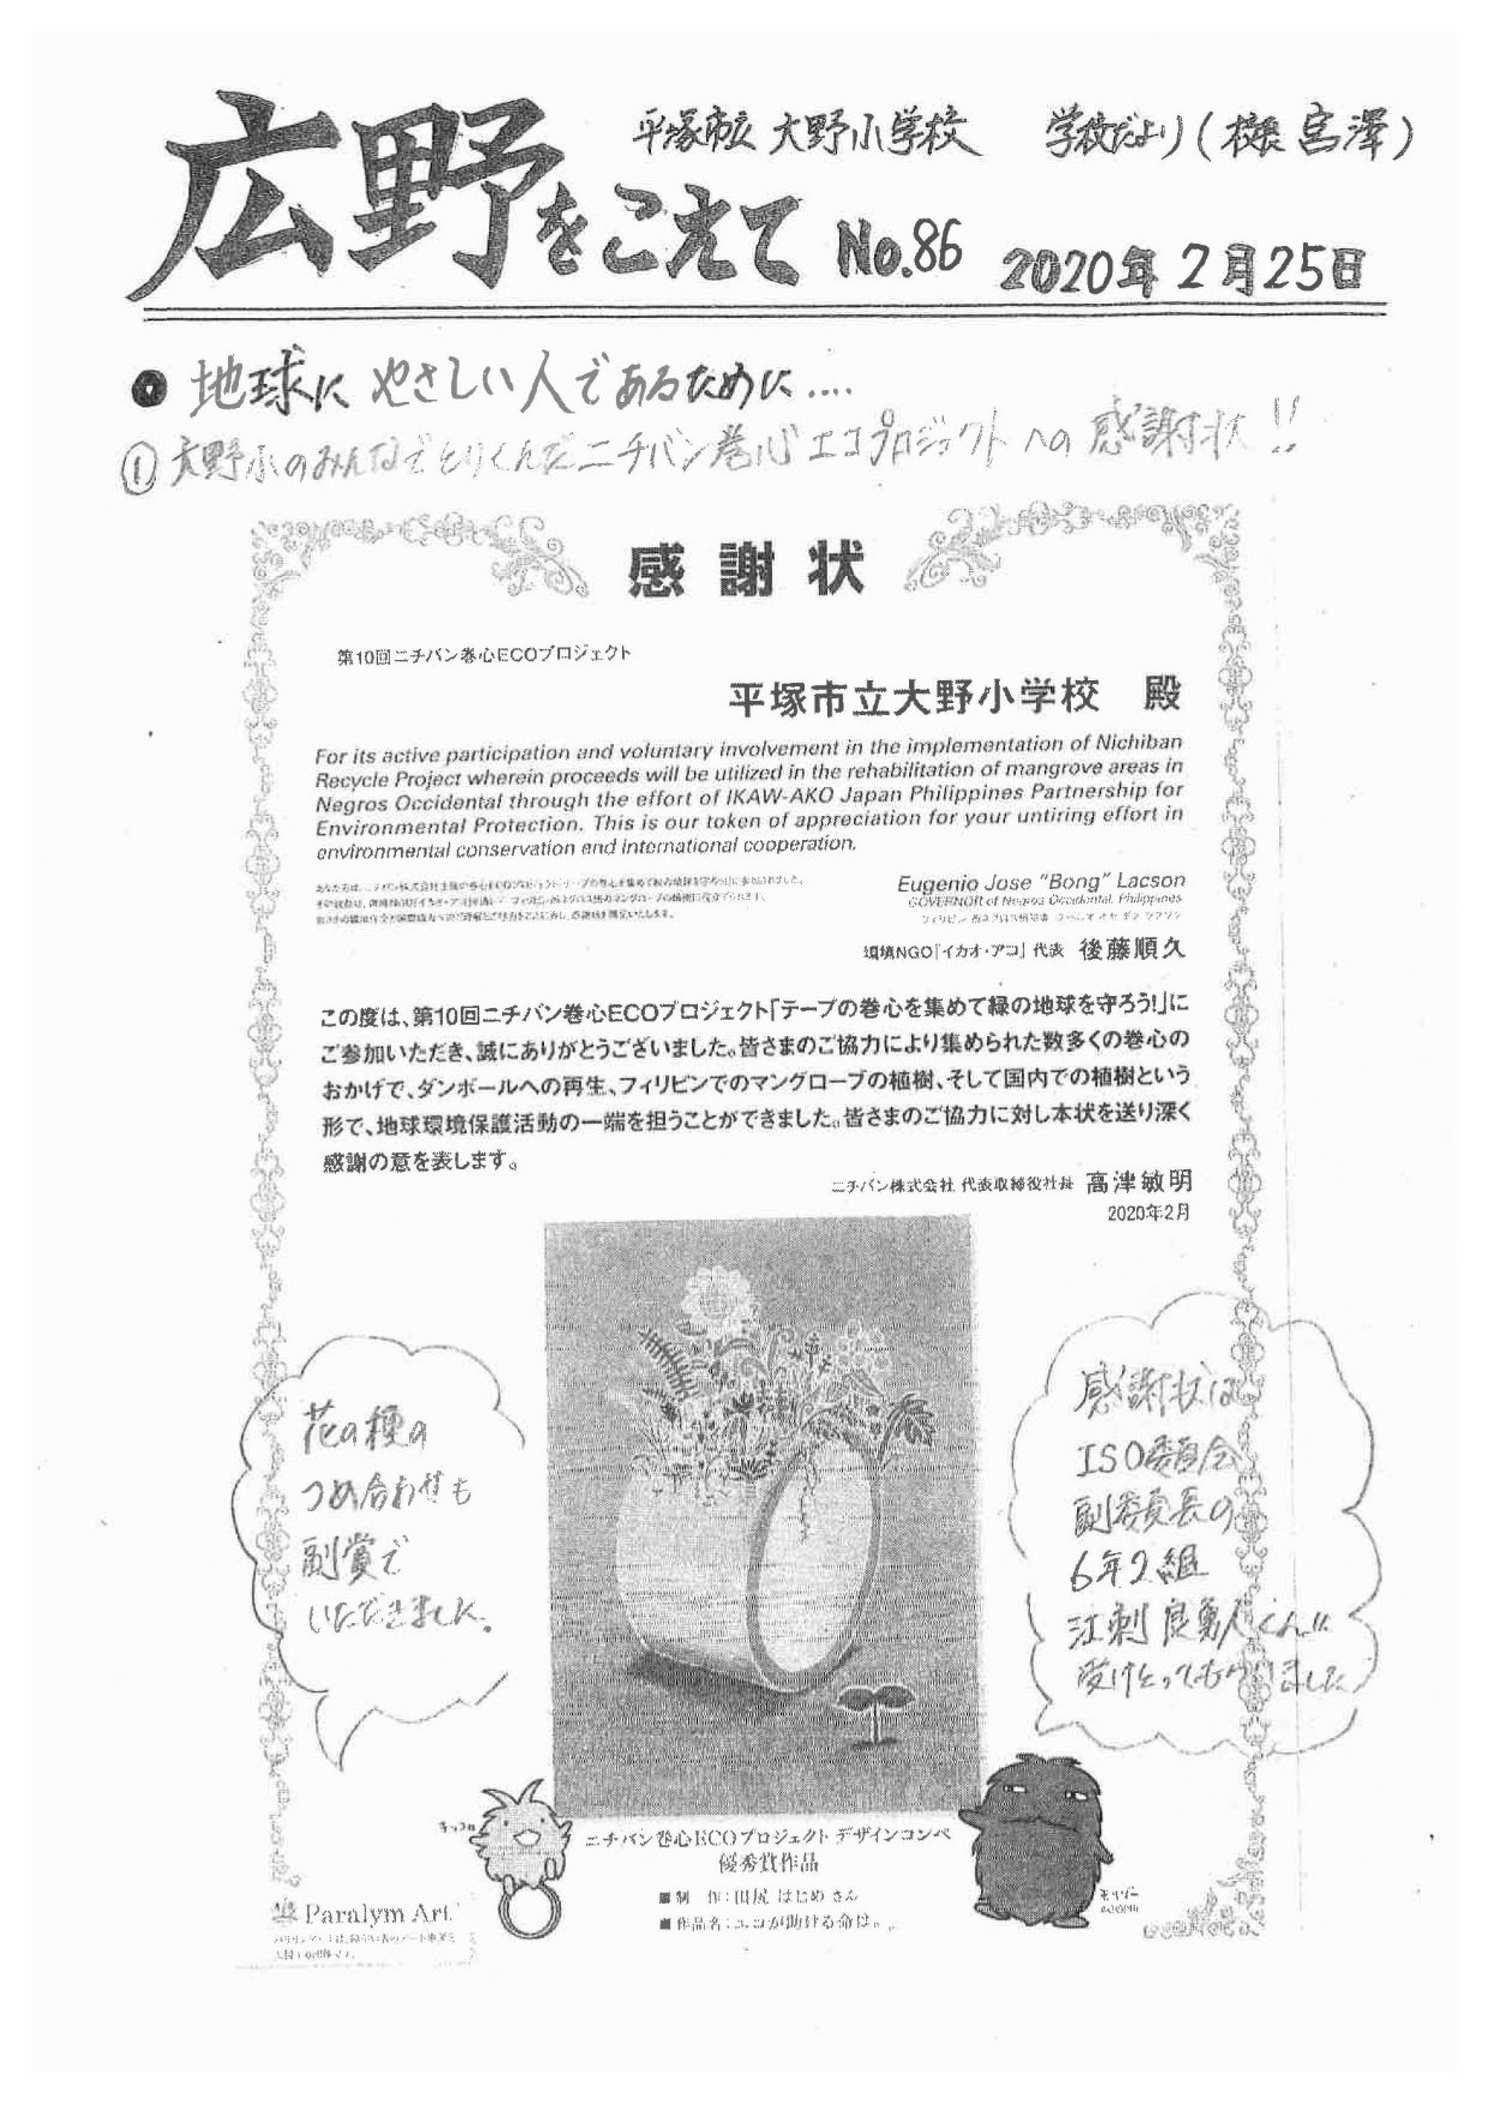 広野をこえて
平塚市立 大野小学校 学校だより(校長 宮澤)
No.86 2020年2月25日
地球にやさしい人であるために....
① 大野小のみんなでとりくんだニチバン巻心エコプロジェクトへの感謝状!!
感謝状
第10回ニチバン巻心ECOプロジェクト
平塚市立大野小学校 殿
For its active participation and voluntary involvement in the implementation of Nichiban
Recycle Project wherein proceeds will be utilized in the rehabilitation of mangrove areas in
Negros Occidental through the effort of IKAW-AKO Japan Philippines Partnership for
Environmental Protection. This is our token of appreciation for your untiring effort in
environmental conservation and international cooperation.
Eugenio Jose "Bong" Lacson
GOVERNOR of Negros Occidental, Philippines
環境NGO「イカオ・アコ」代表 後藤順久
この度は、第10回ニチバン巻心ECOプロジェクト「テープの巻心を集めて緑の地球を守ろう!」に
ご参加いただき、誠にありがとうございました。皆さまのご協力により集められた数多くの巻心の
おかげで、ダンボールへの再生、フィリピンでのマングローブの植樹、そして国内での植樹という
形で、地球環境保護活動の一端を担うことができました。皆さまのご協力に対し本状を送り深く
感謝の意を表します。
ニチバン株式会社 代表取締役社長 高津敏明
2020年2月
花の種の
つめ合わせも
副賞で
いただきました。
感謝状は
ISO委員会
副委員長の
6年2組
江刺 良勇人くんに
受けとってもらいました
ニチバン巻心ECOプロジェクト デザインコンペ
優秀賞作品
■制 作:田尻 はじめ さん
■作品名:エコが助ける命は。。
Paralym Art